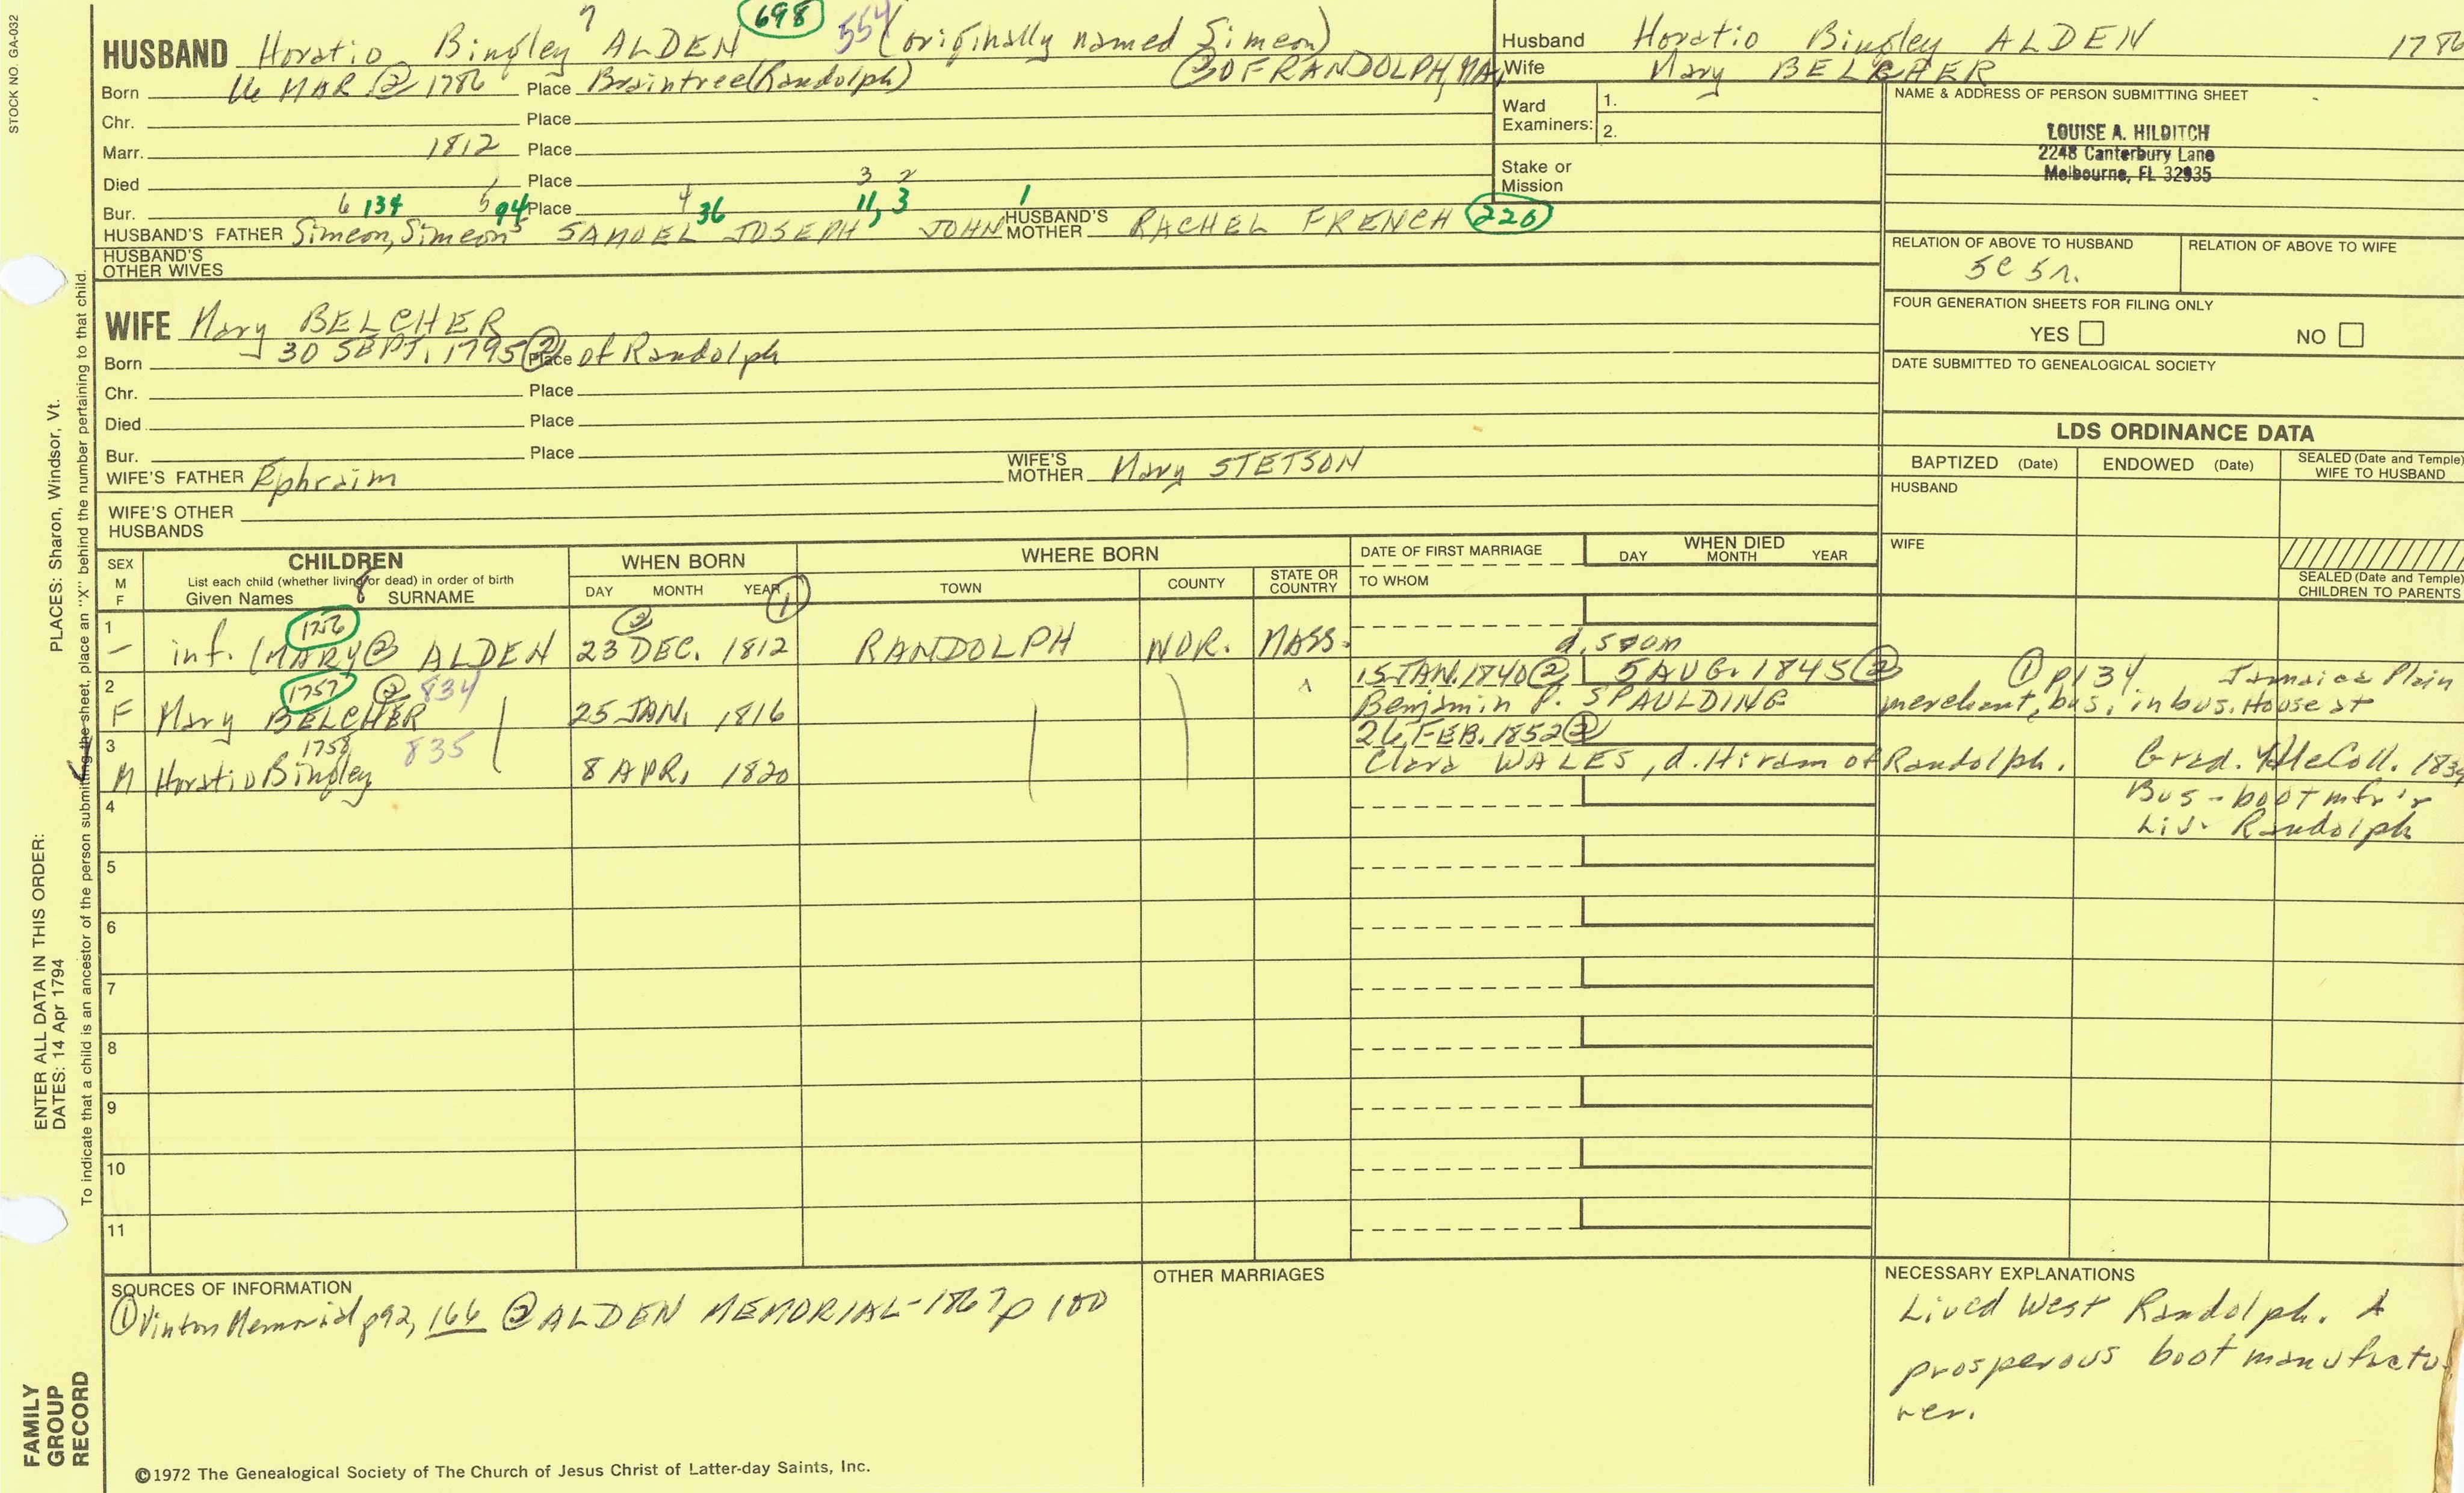 STOCK NO. GA-032
7
698
554
HUSBAND Horatio Bingley ALDEN (originally named Simeon)
Born 16 MAR ② 1786 Place Braintree (Randolph) ② OF RANDOLPH, MA,
Chr. Place
Marr. 1812 Place
Died Place 3 2
Bur. 6 134 5 94 Place 4 36 11, 3 1
HUSBAND'S FATHER Simeon, Simeon SAMUEL JOSEPH JOHN HUSBAND'S MOTHER RACHEL FRENCH 226
HUSBAND'S
OTHER WIVES
Husband Horatio Bingley ALDEN 1786
Wife Mary BELCHER
Ward
Examiners:
1.
2.
Stake or
Mission
NAME & ADDRESS OF PERSON SUBMITTING SHEET
LOUISE A. HILDITCH
2248 Canterbury Lane
Melbourne, FL 32935
RELATION OF ABOVE TO HUSBAND
5C 5r.
RELATION OF ABOVE TO WIFE
FOUR GENERATION SHEETS FOR FILING ONLY
YES NO
DATE SUBMITTED TO GENEALOGICAL SOCIETY
WIFE Mary BELCHER
Born 30 SEPT. 1795 ② Place of Randolph
Chr. Place
Died Place
Bur. Place
WIFE'S FATHER Ephraim WIFE'S MOTHER Mary STETSON
WIFE'S OTHER
HUSBANDS
LDS ORDINANCE DATA
BAPTIZED (Date) ENDOWED (Date) SEALED (Date and Temple) WIFE TO HUSBAND
HUSBAND
WIFE
SEALED (Date and Temple)
CHILDREN TO PARENTS
SEX
M
F
CHILDREN
List each child (whether living or dead) in order of birth
Given Names 8 SURNAME
WHEN BORN
DAY MONTH YEAR ①
WHERE BORN
TOWN COUNTY STATE OR COUNTRY
DATE OF FIRST MARRIAGE
TO WHOM
WHEN DIED
DAY MONTH YEAR
1
1756 ②
– inf. (MARY② ALDEN 23 DEC. 1812 RANDOLPH NOR. MASS. d. soon
2
1757 ② 834 15 JAN. 1840 ② 5 AUG. 1845 ② ① p134 Jamaica Plain
F Mary BELCHER 25 JAN. 1816 Benjamin P. SPAULDING merchant, bus. in bus. House at
3
1758 835 26 FEB. 1852 ②
M Horatio Bingley 8 APR. 1820 Clara WALES, d. Hiram of Randolph. Grad. Coll. 1839
Bus - boot mfr'r
Liv. Randolph
4
5
6
7
8
9
10
11
SOURCES OF INFORMATION
① Vinton Memorial p92, 166 ② ALDEN MEMORIAL-1867 p 100
OTHER MARRIAGES
NECESSARY EXPLANATIONS
Lived West Randolph. A
prosperous boot manufactu
rer.
©1972 The Genealogical Society of The Church of Jesus Christ of Latter-day Saints, Inc.
FAMILY
GROUP
RECORD
ENTER ALL DATA IN THIS ORDER:
DATES: 14 Apr 1794
PLACES: Sharon, Windsor, Vt.
To indicate that a child is an ancestor of the person submitting the sheet, place an "X" behind the number pertaining to that child.